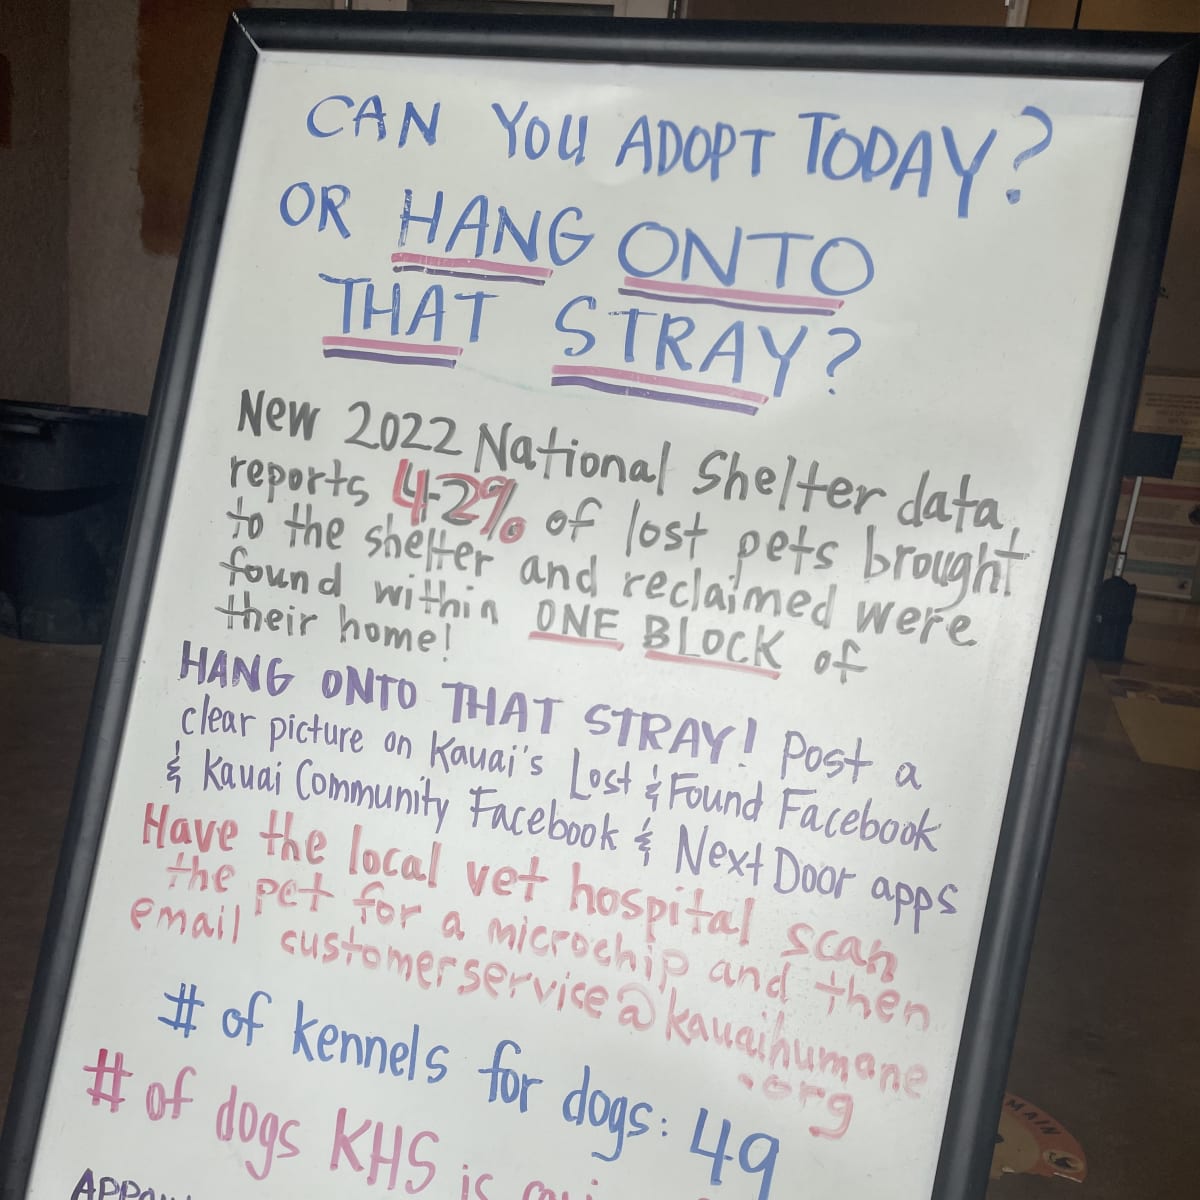 CAN YOU ADOPT TODAY?
OR HANG ONTO
THAT STRAY?
New 2022 National Shelter data
reports 42% of lost pets brought
to the shelter and reclaimed were
found within ONE BLOCK of
their home!
HANG ONTO THAT STRAY! Post a
clear picture on Kauai's Lost & Found Facebook
& Kauai Community Facebook & Next Door apps
Have the local vet hospital scan
the pet for a microchip and then
email customerservice@kauaihumane
.org
# of kennels for dogs: 49
# of dogs KHS is
MAIN